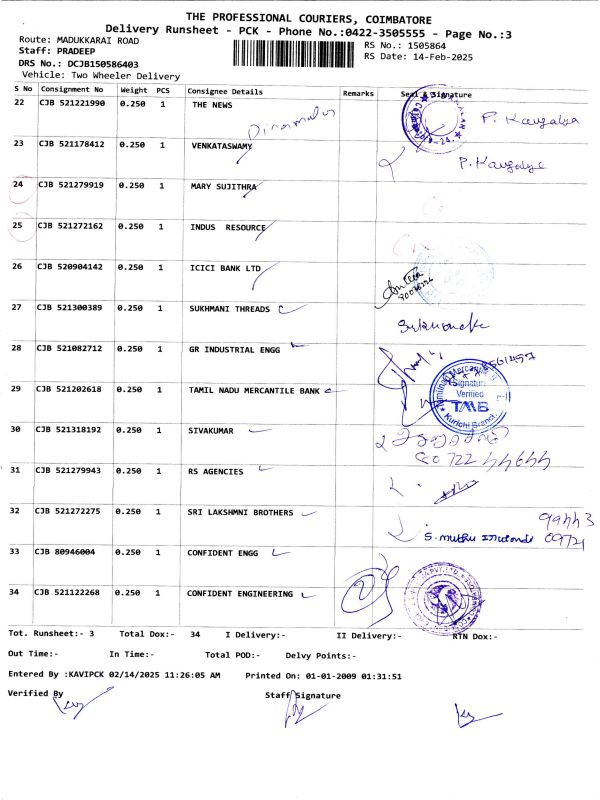 THE PROFESSIONAL COURIERS, COIMBATORE
Delivery Runsheet - PCK - Phone No.:0422-3505555 - Page No.:3
Route: MADUKKARAI ROAD
RS No.: 1505864
Staff: PRADEEP
RS Date: 14-Feb-2025
DRS No.: DCJB150586403
Vehicle: Two Wheeler Delivery
S No Consignment No Weight PCS Consignee Details Remarks Seal & Signature
22 CJB 521221990 0.250 1 THE NEWS
Dinamalar
P. Kausalya
23 CJB 521178412 0.250 1 VENKATASWAMY
P. Kausalya
24 CJB 521279919 0.250 1 MARY SUJITHRA
25 CJB 521272162 0.250 1 INDUS RESOURCE
26 CJB 520904142 0.250 1 ICICI BANK LTD
27 CJB 521300389 0.250 1 SUKHMANI THREADS
28 CJB 521082712 0.250 1 GR INDUSTRIAL ENGG
29 CJB 521202618 0.250 1 TAMIL NADU MERCANTILE BANK
Signature
Verified
TMB
Kurichi Branch
30 CJB 521318192 0.250 1 SIVAKUMAR
80722 44644
31 CJB 521279943 0.250 1 RS AGENCIES
32 CJB 521272275 0.250 1 SRI LAKSHMNI BROTHERS
99443
09721
33 CJB 80946004 0.250 1 CONFIDENT ENGG
34 CJB 521122268 0.250 1 CONFIDENT ENGINEERING
Tot. Runsheet:- 3 Total Dox:- 34 I Delivery:- II Delivery:- RTN Dox:-
Out Time:- In Time:- Total POD:- Delvy Points:-
Entered By :KAVIPCK 02/14/2025 11:26:05 AM Printed On: 01-01-2009 01:31:51
Verified By Staff Signature